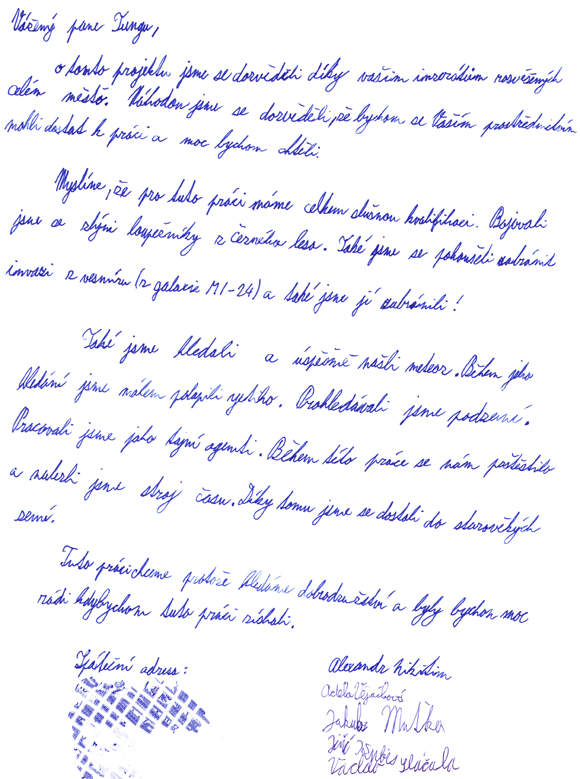 Vážený pane Tungu,
o tomto projektu jsme se dozvěděli díky vašim inzerátům rozvěšených
celém městě. Náhodou jsme se dozvěděli, že bychom se Vaším prostřednictvím
mohli dostat k práci a moc bychom chtěli.
Myslíme, že pro tuto práci máme celkem slušnou kvalifikaci. Bojovali
jsme se zlými loupežníky z černého lesa. Také jsme se pokoušeli zabránit
invazi z vesmíru (z galaxie M1-24) a také jsme jí zabránili!
Také jsme hledali a úspěšně našli meteor. Během jeho
hledání jsme málem polapili yetiho. Prohledávali jsme podzemí.
Pracovali jsme jako tajní agenti. Během této práce se nám poštěstilo
a nalezli jsme stroj času. Díky tomu jsme se dostali do starověkých
zemí.
Tuto práci chceme protože hledáme dobrodružství a byly bychom moc
rádi kdybychom tuto práci získali.
Zpáteční adresa:
Alexandr Nikitin
Adéla
Jakub Muška
Jiří
Václav